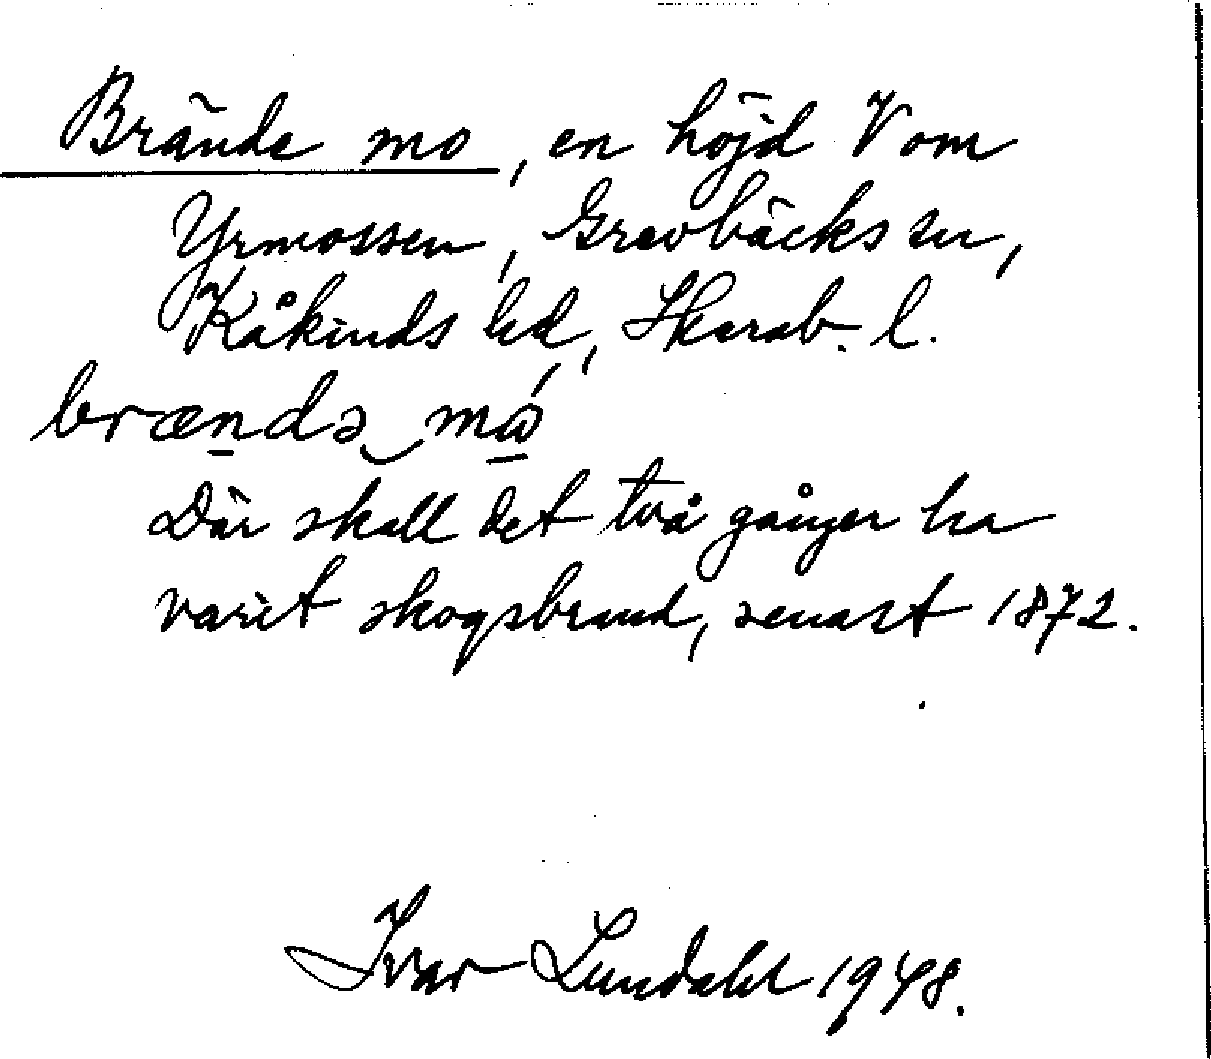 Brände mo, en höjd V om
Yrmossen, Grevbäcks sn,
Kåkinds hd, Skarab. l.
brændə mó
Där skall det två gånger ha
varit skogsbrand, senast 1872.
Ivar Lundahl 1948.